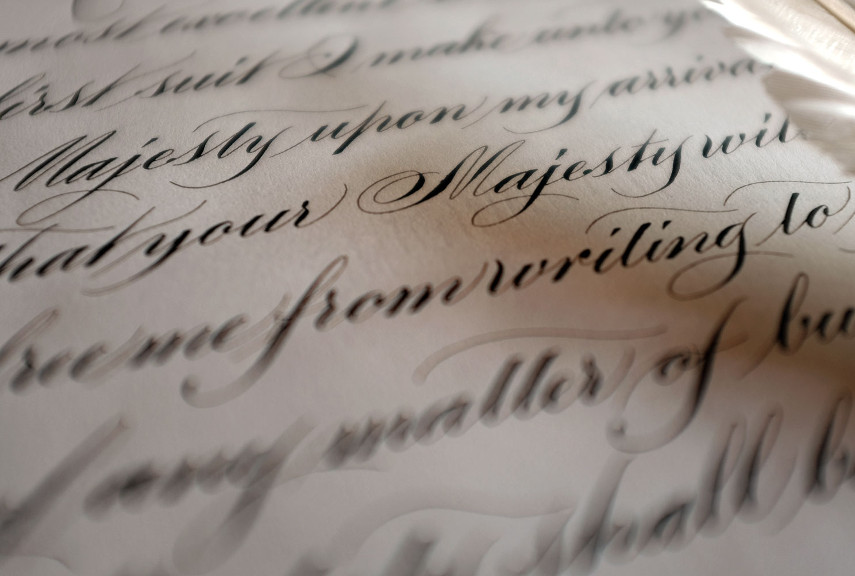 most excellent
first suit I make unto yo
Majesty upon my arriva
that your Majesty wil
free me from writing to
of any matter of bu
shall b